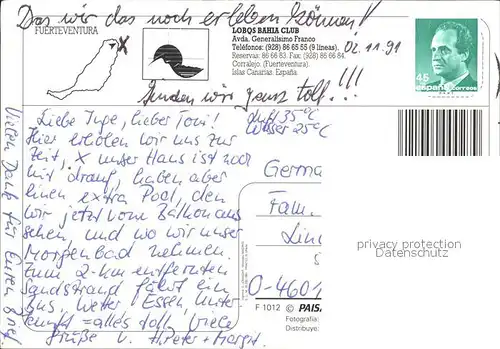 Das wir das noch erleben können!!
FUERTEVENTURA
X
LOBOS BAHIA CLUB
Avda. Generalísimo Franco
Teléfonos: (928) 86 65 55 (9 líneas).
Reservas: 86 66 83. Fax: (928) 86 66 84.
Corralejo. (Fuerteventura).
Islas Canarias. España.
02.11.91
finden wir ganz toll!!!
45
españa correos
Vielen Dank für Euren Brief
Liebe Inge, lieber Toni!
Luft 35°C
Wasser 25°C
Hier erholen wir uns zur
Zeit, X unser Haus ist noch
mit drauf, haben aber
einen extra Pool, den
wir jetzt vom Balkon aus
sehen, und wo wir unser
Morgenbad nehmen.
Zum 2-km entfernten
Sandstrand fährt ein
Bus, Wetter Essen Unter
kunft = alles toll, viele
Grüße v. H. Peter + Margit
Germa
Fam.
Lin
O-460
privacy protection
Datenschutz
F 1012 © PAIS
Fotografía
Distribuye: